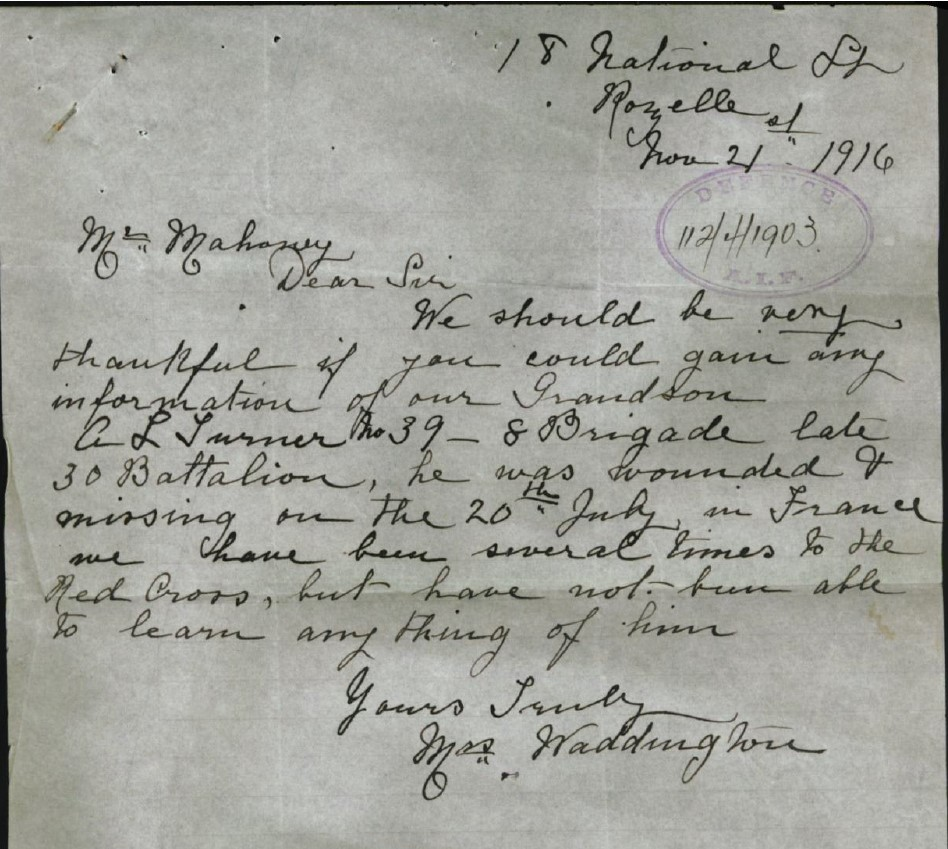 18 National St
Rozelle
Nov 21st 1916
DEFENCE
112/4/1903.
A.I.F.
Mr Mahoney
Dear Sir
We should be very
thankful if you could gain any
information of our Grandson
A L Turner No 39 - 8 Brigade late
30 Battalion, he was wounded &
missing on the 20th July, in France
we have been several times to the
Red Cross, but have not been able
to learn any thing of him
Yours Truly
Mrs. Waddington